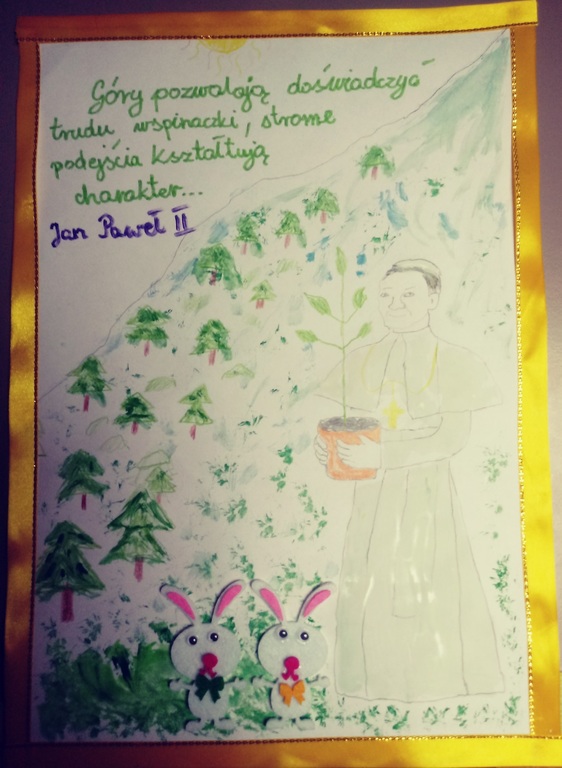 Góry pozwalają doświadczyć
trudu wspinaczki, strome
podejścia kształtują
charakter...
Jan Paweł II